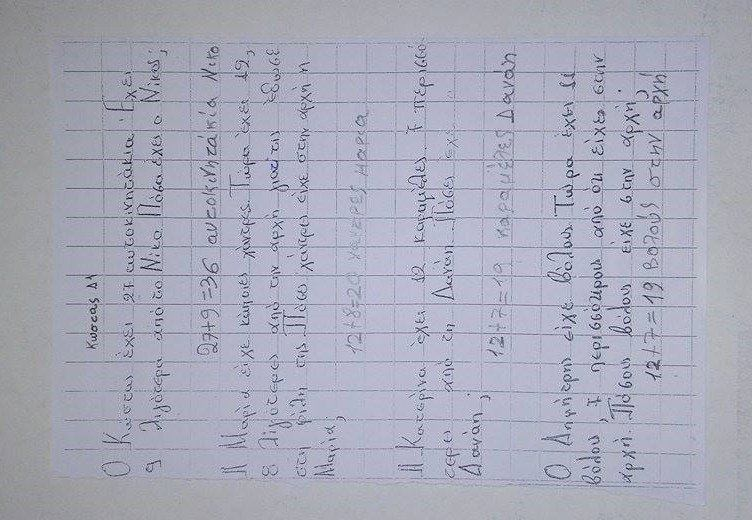 Κώστας Δ1
Ο Κώστας έχει 27 αυτοκινητάκια. Έχει
9 λιγότερα από το Νίκο. Πόσα έχει ο Νίκος;
27+9=36 αυτοκινητάκια Νικο
Η Μαρία είχε κάποιες χάντρες. Τώρα έχει 12,
8 λιγότερες από την αρχή γιατί τις έδωσε
στη φίλη της. Πόσες χάντρες είχε στην αρχή η
Μαρία;
12+8=20 χάντρες μαρια
Η Κατερίνα έχει 12 καραμέλες 7 περισσό
τερες από τη Δανάη. Πόσες έχει η
Δανάη;
12+7=19 καραμέλες Δανάη
Ο Δημήτρης είχε βόλους. Τώρα έχει 12
βόλους, 7 περισσότερους από ότι είχε στην
αρχή. Πόσους βόλους είχε στην αρχή;
12+7=19 Βολούς στην αρχή